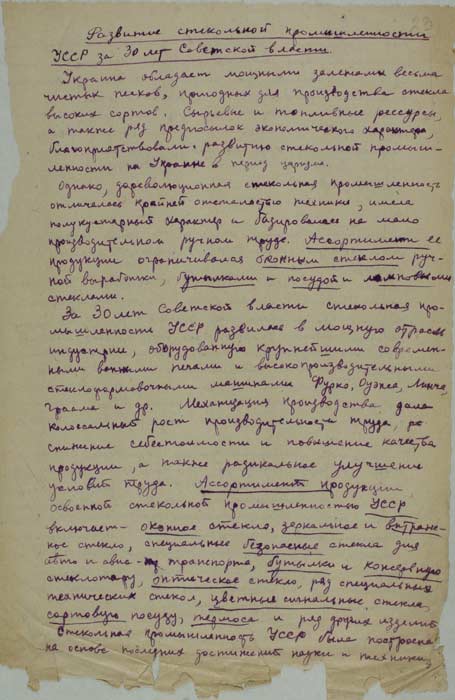 Развитие стекольной промышленности
УССР за 30 лет Советской власти.
Украина обладает мощными залежами весьма
чистых песков, пригодных для производства стекла
высоких сортов. Сырьевые и топливные рессурсы,
а также ряд предпосылок экономического характера,
благоприятствовали развитию стекольной промыш-
ленности на Украине в период царизма.
Однако, дореволюционная стекольная промышленность
отличалась крайней отсталостью техники, имела
полукустарный характер и базировалась на мало
производительном ручном труде. Ассортимент ее
продукции ограничивался оконным стеклом руч-
ной выработки, бутылками и посудой и ламповыми
стеклами.
За 30 лет Советской власти стекольная про-
мышленность УССР развилась в мощную отрасль
индустрии, оборудованную крупнейшими современ-
ными ванными печами и высокопроизводительными
стеклоформовочными машинами Фурко, Оуэнса, Линча,
Грама и др. Механизация производства дала
колоссальный рост производительности труда,
снижение себестоимости и повышение качества
продукции, а также радикальное улучшение
условий труда. Ассортимент продукции,
освоенной стекольной промышленностью УССР
включает - оконное стекло, зеркальное и витрин-
ное стекло, специальные безопасные стекла для
авто и авиа- транспорта, бутылки и консервную
стеклотару, оптическое стекло, ряд специальных
технических стекол, цветные сигнальные стекла,
сортовую посуду, термоса и ряд других изделий
Стекольная промышленность УССР была построена
на основе последних достижений науки и техники,